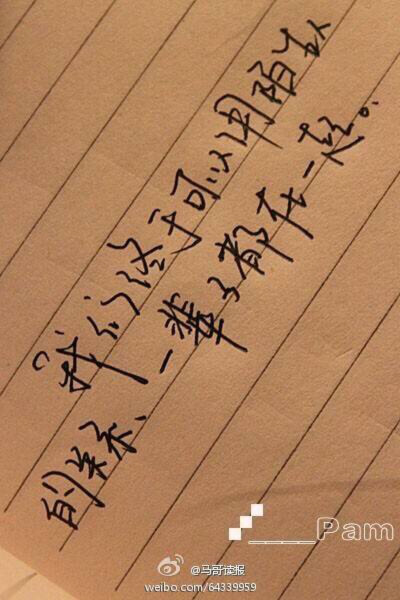 我们终于可以用陌生人
的关系、一辈子都在一起。
____Pam
@马哥读报
weibo.com/64339959